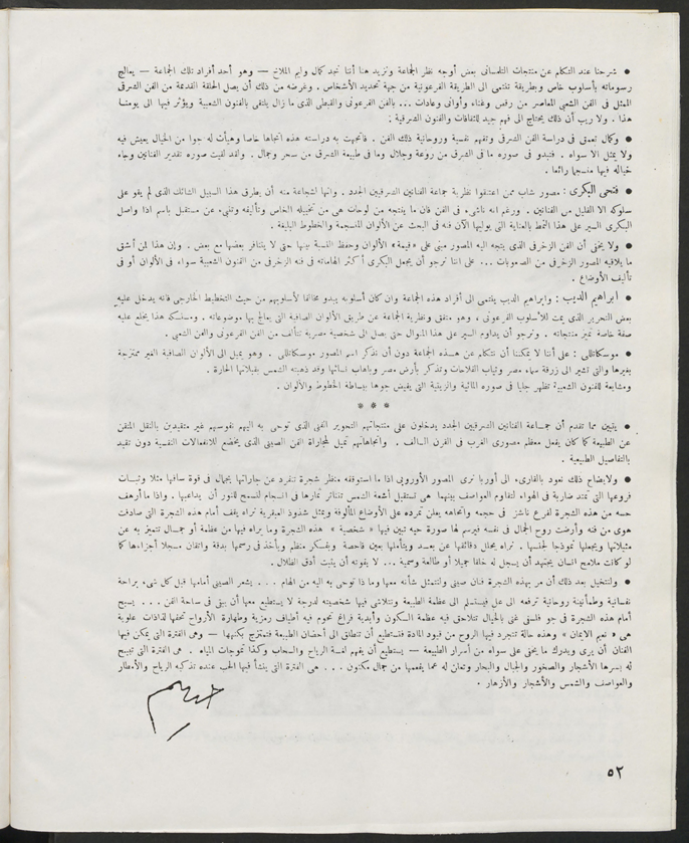 • شرحنا عند التكلم عن منتجات التلمسانى بعض أوجه نظر الجماعة ونزيد هنا أننا نجد كمال وليم الملاخ — وهو أحد أفراد تلك الجماعة — يعالج
رسوماته بأسلوب خاص وبطريقة تنتمى الى الطريقة الفرعونية من جهة تحديد الأشخاص . وغرضه من ذلك أن يصل الحلقة القديمة من الفن الشرقى
الممثل فى الفن الشعبى المعاصر من رقص وغناء وأوانى وعادات ... بالفن الفرعونى والقبطى الذى ما زال يلتقى بالفنون الشعبية ويؤثر فيها الى يومنا
هذا . ولا ريب أن ذلك يحتاج الى فهم جيد للثقافات والفنون الشرقية :
• وكمال تعمق فى دراسة الفن الشرقى وتفهم نفسية وروحانية ذلك الفن . فاتجهت به دراسته هذه اتجاها خاصا وهيأت له جوا من الخيال يعيش فيه
ولا يمثل الا سواه . فتبدو فى صوره ما فى الشرق من روعة وجلال وما فى طبيعة الشرق من سحر وجمال . ولقد لقيت صوره تقدير الفنانين وجاء
خياله فيها منسجما رائعا .
• فتحى البكرى : مصور شاب ممن اعتنقوا نظرية جماعة الفنانين الشرقيين الجدد . وانها لشجاعة منه أن يطرق هذا السبيل الشائك الذى لم يقو على
سلوكه الا القليل من الفنانين . ورغم انه ناشىء فى الفن فان ما ينتجه من لوحات هى من تخيله الخاص وتأليفه وتنبىء عن مستقبل باسم اذا واصل
البكرى السير على هذا النمط بالعناية التى يوليها الآن فنه فى البحث عن الألوان المنسجمة والخطوط البليغة .
• ولا يخفى أن الفن الزخرفى الذى يتجه اليه المصور مبنى على « قيمة » الألوان وحفظ النسبة بينها حتى لا يتنافر بعضها مع بعض . وإن هذا لمن أشق
ما يلاقيه المصور الزخرفى من الصعوبات ... على اننا نرجو أن يجعل البكرى أكثر الهاماته فى فنه الزخرفى من الفنون الشعبية سواء فى الألوان أو فى
تأليف الأوضاع .
• ابراهيم الديب : وابراهيم الديب ينتمى الى أفراد هذه الجماعة وان كان أسلوبه يبدو مخالفا لأسلوبهم من حيث التخطيط الخارجى فانه يدخل عليه
بعض التحوير الذى يمت للأسلوب الفرعونى ، وهو متفق ونظرية الجماعة عن طريق الألوان الصافية التى يعالج بها موضوعاته . ومسلكه هذا يخلع عليه
صفة خاصة تميز منتجاته . ونرجو أن يداوم السير على هذا المنوال حتى يصل الى شخصية مصرية تتألف من الفن الفرعونى والفن الشعبى .
• موسكاتللى : على أننا لا يمكننا أن نتكلم عن هذه الجماعة دون أن نذكر اسم المصور موسكاتللى . وهو يميل الى الألوان الصافية الغير ممتزجة
بغيرها والتى تشير الى زرقة سماء مصر وثياب الفلاحات وتذكر بأرض مصر وباهاب نسائها وقد ذهبته الشمس بقبلاتها الحارة .
ومشايعة للفنون الشعبية تظهر جليا فى صوره المائية والزيتية التى يفيض جوها ببساطة الخطوط والألوان .
* * *
• يتبين مما تقدم أن جماعة الفنانين الشرقيين الجدد يدخلون على منتجاتهم التحوير الفنى الذى توحى به اليهم نفوسهم غير متقيدين بالنقل المتقن
عن الطبيعة كما كان يفعل معظم مصورى الغرب فى القرن السالف . واتجاهاتهم تميل لمجاراة الفن الصينى الذى يخضع للانفعالات النفسية دون تقيد
بالتفاصيل الطبيعية .
• ولايضاح ذلك نعود بالقارىء الى أوربا نرى المصور الأوروبى اذا ما استوقفه منظر شجرة تنفرد عن جاراتها بجمال فى قوة ساقها مثلا وثبات
فروعها التى تمتد ضاربة فى الهواء لتقاوم العواصف بينما هى تستقبل أشعة الشمس تتناثر ثمارها فى انسجام لتسمح للنور أن يداعبها . واذا ما أرهف
حسه من هذه الشجرة لفرع ناشز فى حجمه واتجاهه يعلن تمرده على الأوضاع المألوفة ويمثل شذوذ العبقرية تراه يقف أمام هذه الشجرة التى صادفت
هوى من فنه وأرضت روح الجمال فى نفسه فيرسم لها صورة حية تبين فيها « شخصية » هذه الشجرة وما يراه فيها من عظمة أو جمال تتميز به عن
مثيلاتها ويجعلها نموذجا لجنسها . تراه يحلل دقائقها عن بعد ويتأملها بعين فاحصة وبفكر منظم ويأخذ فى رسمها بدقة واتقان مسجلا أجزاءها كما
لو كانت ملامح انسان يجتهد أن يسجل له خلقا جميلا أو طالعة وسمية ... لا يفوته أن يثبت أدق الظلال .
• ولنتخيل بعد ذلك أن مر بهذه الشجرة فنان صينى ولنتمثل شأنه معها وما ذا توحى به اليه من الهام ... يشعر الصينى أمامها قبل كل شىء براحة
نفسانية وطمأنينة روحانية ترفعه الى عل فيستسلم الى عظمة الطبيعة وتتلاشى فيها شخصيته لدرجة لا يستطيع معها أن يبقى فى ساحة الفن ... يسبح
أمام هذه الشجرة فى جو فلسفى غنى بالخيال تتلاحق فيه عظمة السكون وأبدية فراغ تحوم فيه أطياف رمزية وطهارة الأرواح تحفها لذاذات علوية
هى « نعيم الايمان » وهذه حالة تتجرد فيها الروح من قيود المادة فتستطيع أن تنطلق الى أحضان الطبيعة فتمتزج بكنهها — وهى الفترة التى يمكن فيها
الفنان أن يرى ويدرك ما يخفى على سواه من أسرار الطبيعة — يستطيع أن يفهم لغة الرياح والسحاب وكذا تموجات المياه . هى الفترة التى تبيح
له بسرها الأشجار والصخور والجبال والبحار وتعلن له عما يفعمها من جمال مكنون ... هى الفترة التى ينشأ فيها الحب عنده تذكيه الرياح والأمطار
والعواصف والشمس والأشجار والأزهار .
٥٢